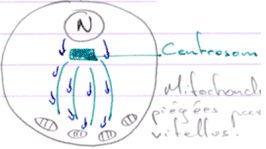 N
Centrosom
Mitochond
piégées par
vitellus.